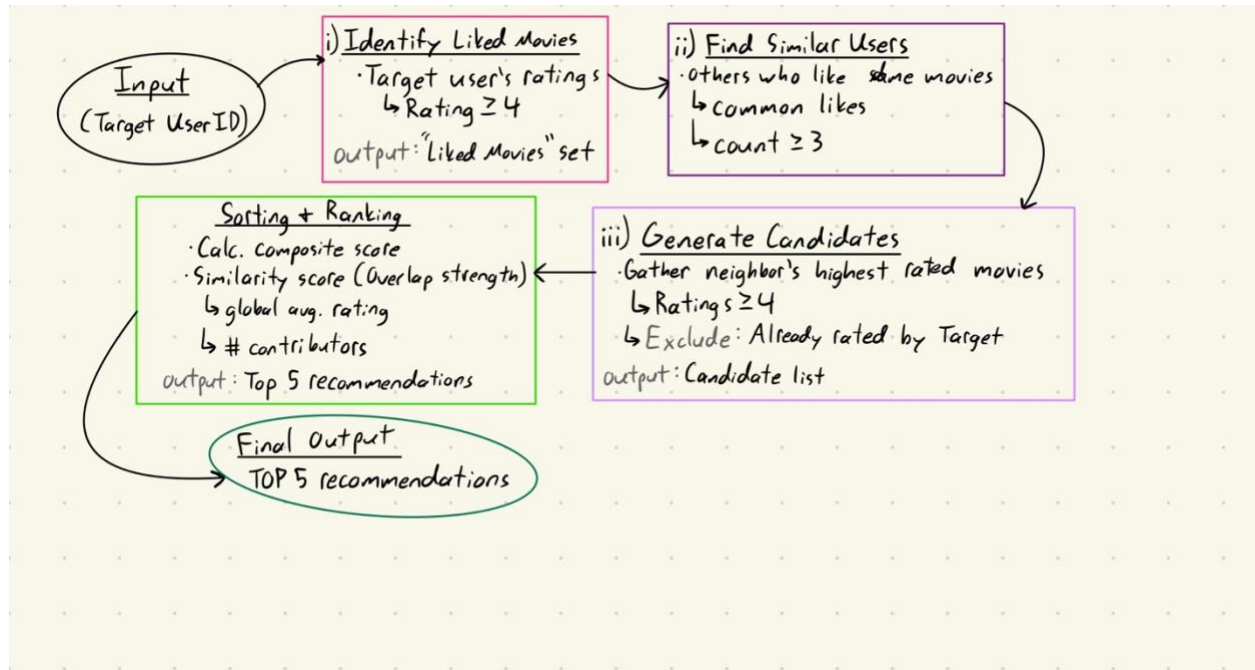 Input
(Target User ID)
i) Identify Liked Movies
· Target user's ratings
↳ Rating ≥ 4
output: "Liked Movies" set
ii) Find Similar Users
· others who like same movies
↳ common likes
↳ count ≥ 3
iii) Generate Candidates
· Gather neighbor's highest rated movies
↳ Ratings ≥ 4
↳ Exclude: Already rated by Target
output: Candidate list
Sorting + Ranking
· Calc. composite score
· Similarity score (Overlap strength)
↳ global avg. rating
↳ # contributors
output: Top 5 recommendations
Final Output
TOP 5 recommendations